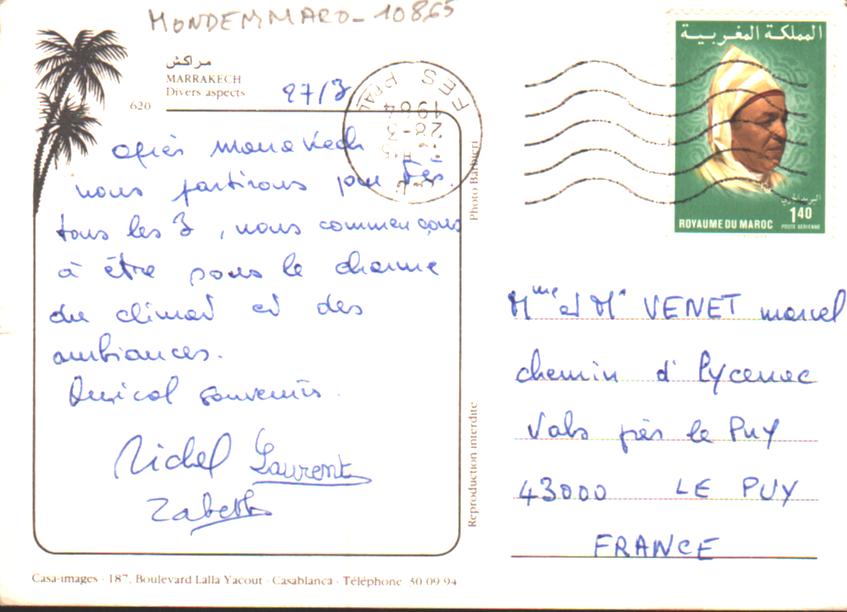 MONDEMMARO-10865
مراكش
MARRAKECH
Divers aspects
620
27/3
après Marrakech
nous partirons pour Fès.
tous les 3, nous commençons
à être sous le charme
du climat et des
ambiances.
Amical souvenirs.
Michel Laurent
Zabeth
FES PPAL
28-3
1984
Photo Barbieri
Reproduction interdite
المملكة المغربية
البريد الجوي
ROYAUME DU MAROC
1,40
POSTE AÉRIENNE
Mme et Mr VENET marcel
chemin d'Eycenac
Vals près le Puy
43000 LE PUY
FRANCE
Casa-images - 187, Boulevard Lalla Yacout - Casablanca - Téléphone 30 09 94